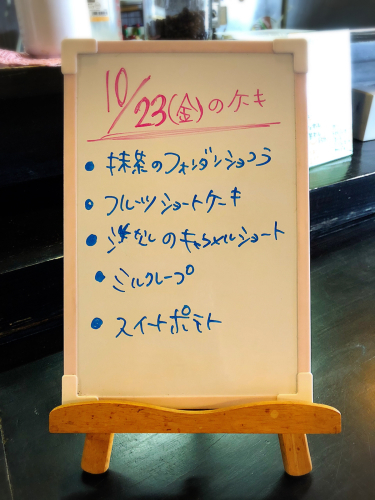 10/23(金)のケーキ
・抹茶のフォンダンショコラ
・フルーツショートケーキ
・洋なしのキャラメルショート
・ミルクレープ
・スイートポテト